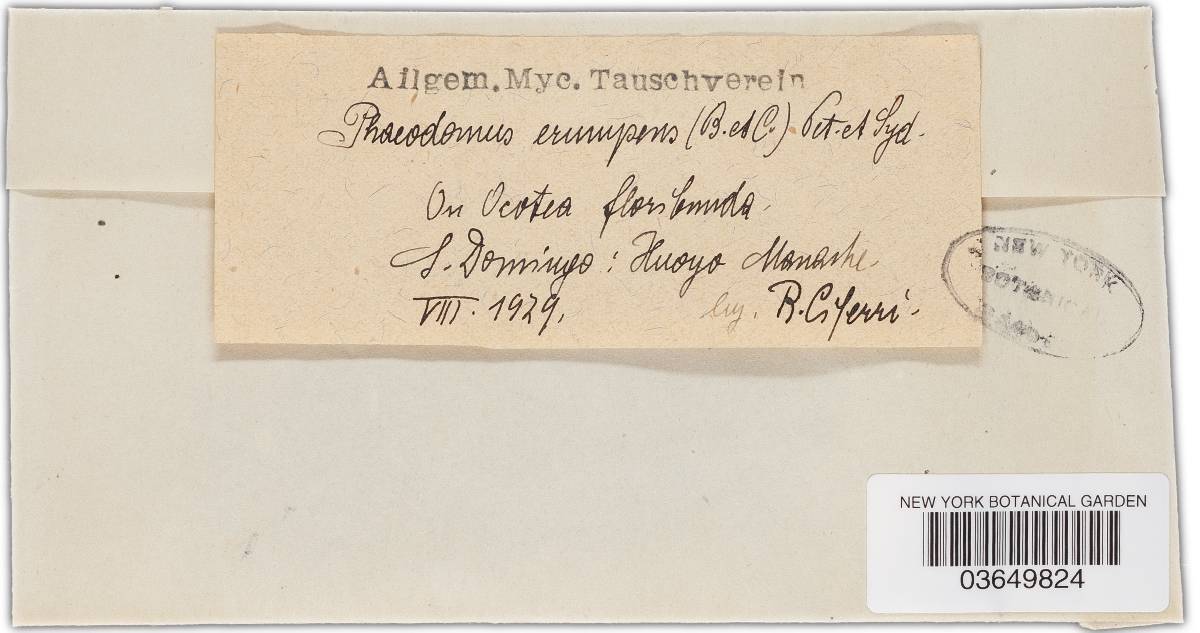 Allgem. Myc. Tauschverein
Phaeodomus erumpens (B. et C.) Pet. et Syd.
On Ocotea floribunda.
S. Domingo: Huoyo Manashe.
VIII. 1929. leg. R. Ciferri.
NEW YORK
BOTANICAL
NEW YORK BOTANICAL GARDEN
03649824